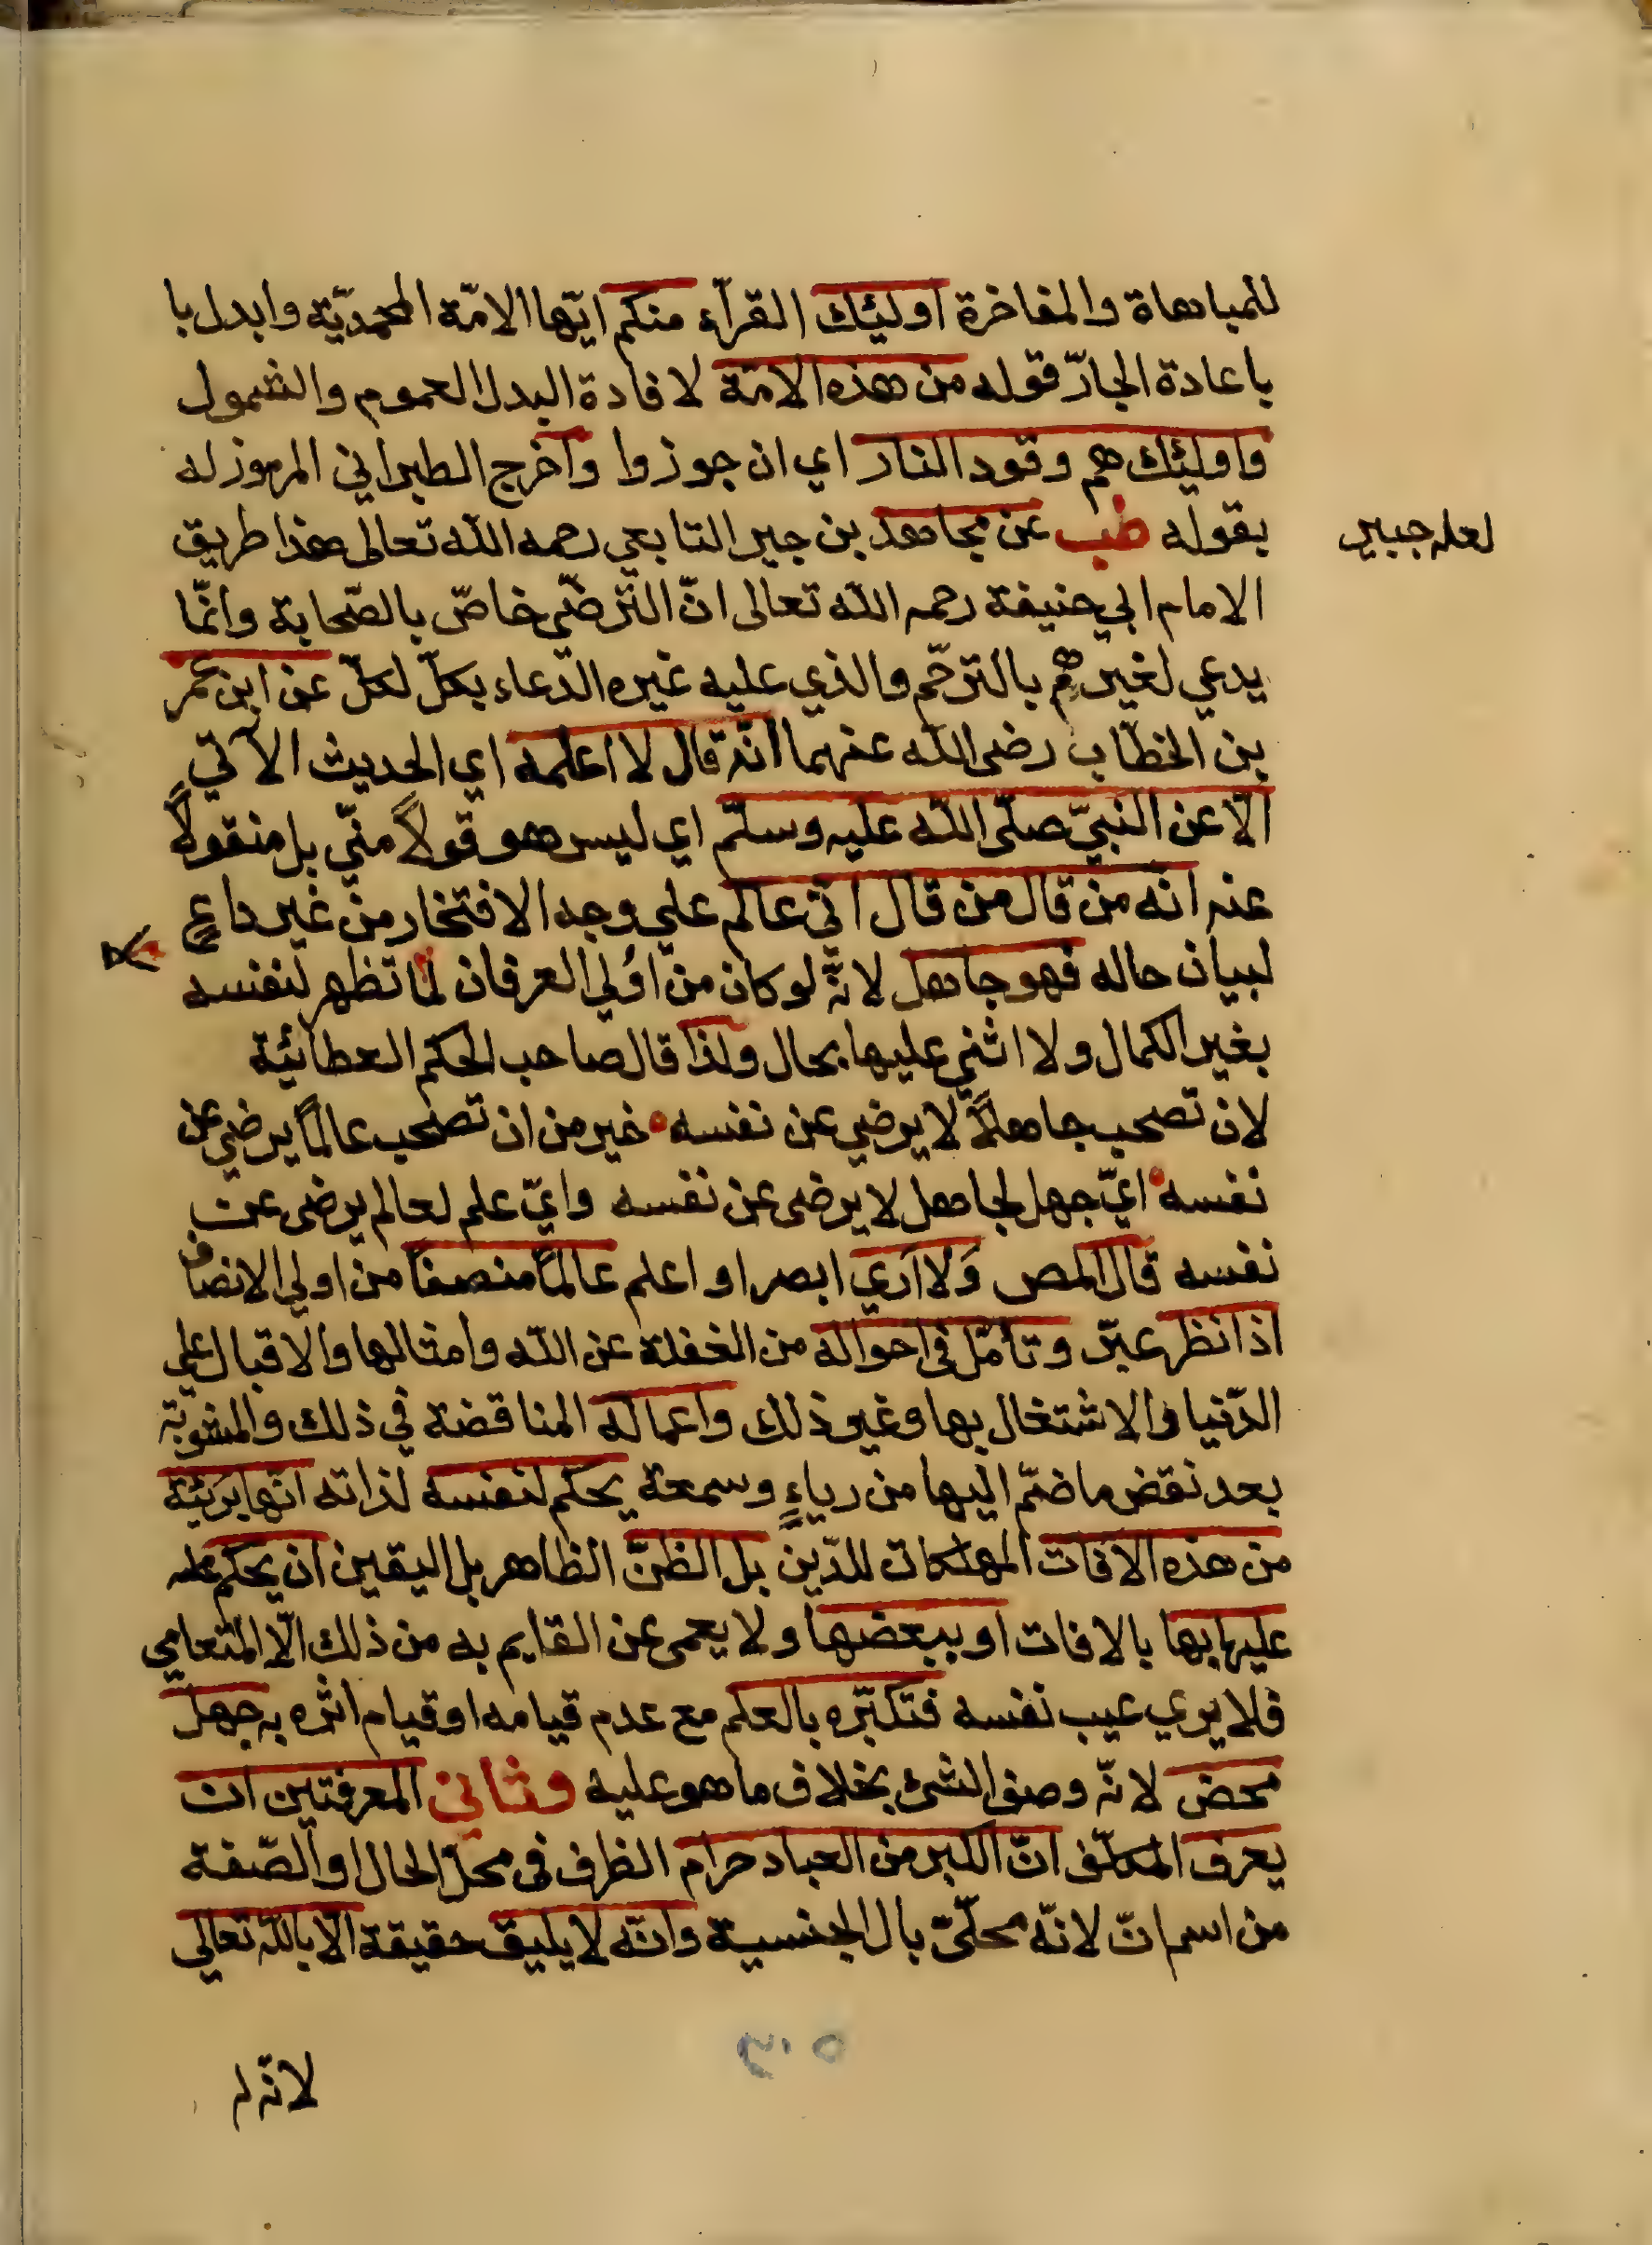 للمباهاة والمفاخرة اوليئك القرآء منكم ايّها الامّة المحمديّة وابدل با
باعادة الجارّ قوله من هذه الامة لافادة البدل العموم والشمول
واوليئك هم وقود النار اي ان جوزوا وآخرج الطبراني المرموز له
بقوله طب عن مجاهد بن جير التابعي رحمه الله تعالى هذا طريق
لعله جبير
الامام ابي حنيفة رحمه الله تعالى انّ التّرضّي خاصّ بالصّحابة وانّما
يدعي لغيرهم بالترحّم والذي عليه غيره الدّعاء بكلّ لكلّ عن ابن عمر
بن الخطّاب رضى الله عنهما انّه قال لا اعلمه اي الحديث الآتي
الّا عن النّبيّ صلّى الله عليه وسلّم اي ليس هو قولاً منّي بل منقولاً
عنه انّه من قال من قال انّي عالم على وجه الافتخار من غير داعٍ
لبيان حاله فهو جاهل لانّه لو كان من اُولي العرفان لما تظهر لنفسه
بغير الكمال ولا اثني عليها بحال ولذا قال صاحب الحكم العطائيّة
لان تصحب جاهلاً لا يرضي عن نفسه خير من ان تصحب عالماً يرضي عن
نفسه ايّ جهل لجاهل لا يرضى عن نفسه وايّ علم لعالم يرضى عن
نفسه قال المص وَلا اَرَي ابصر او اعلم عالماً منصفاً من اولي الانصاف
اذا نظر عبّر وتأمّل في احواله من الغفلة عن الله وامثالها والاقبال على
الدّنيا والاشتغال بها وغير ذلك واعماله المناقضة في ذلك والمشوبة
بعد نقض ما ضمّ اليها من رياءٍ وسمعة يحكم لنفسه لذاته انّها بَرِيئة
من هذه الافات المهلكات للدّين بل الظنّ الظاهر بل اليقين ان يحكم عليه
عليها بها بالافات او ببعضها ولا يعمى عن القايم به من ذلك الّا المتعامي
فلا يري عيب نفسه فتكبّره بالعلم مع عدم قيامه او قيام اثره به جهل
محض لانّه وصف الشئ بخلاف ما هو عليه وثاني المعرفتين ان
يعرف المكلّف انّ الكبر من العباد حرام الظرف في محلّ الحال او الصّفة
من اسم انّ لانّه محلّيّ بال الجنسية وانّه لا يليق حقيقة الّا بالله تعالي
لانّه